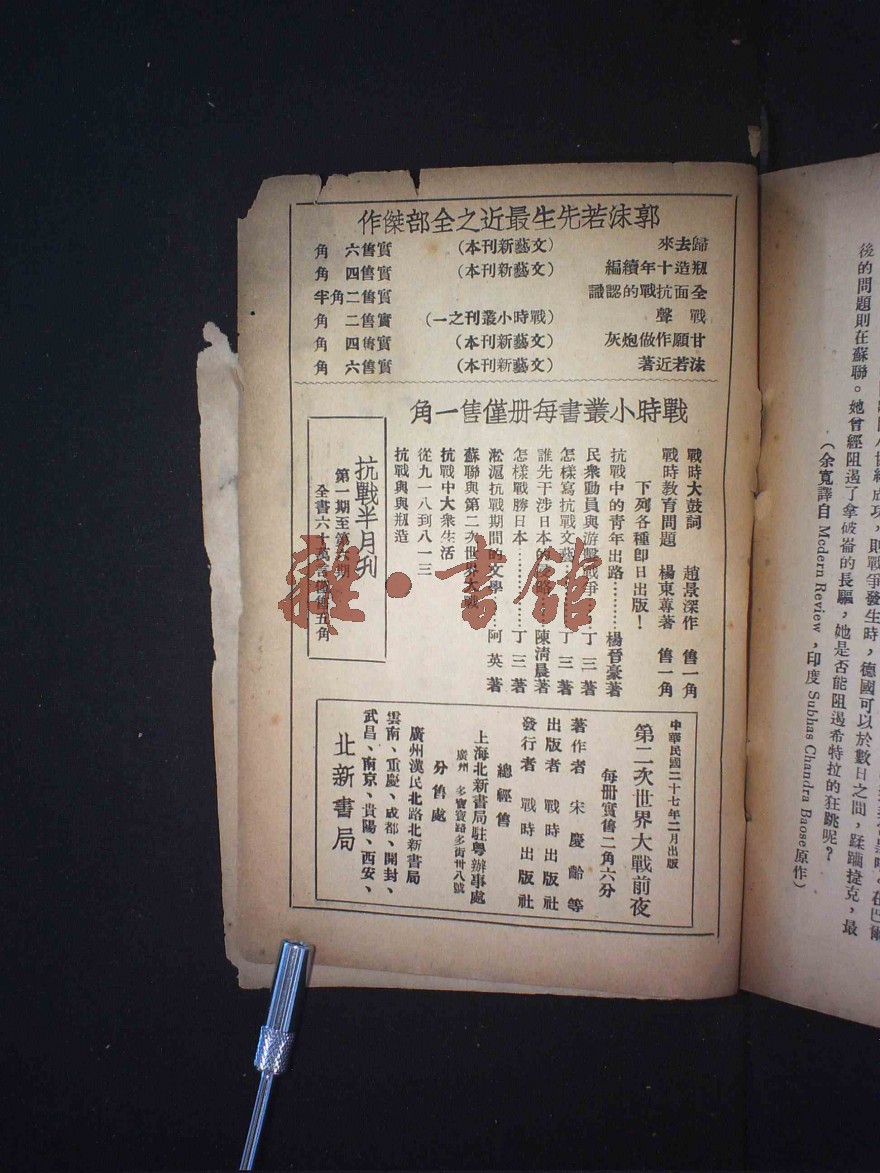 後的問題則在蘇聯。她曾經阻遏了拿破崙的長驅，她是否能阻遏希特拉的狂跳呢？
則戰爭發生時，德國可以於數日之間，蹂躪捷克，最
（余寬譯自 Modern Review，印度 Subhas Chandra Baose原作）
郭沫若先生最近之全部傑作
歸去來 （文藝新刊本） 實售六角
瓶造十年續編 （文藝新刊本） 實售四角
全面抗戰的認識 實售二角半
戰聲 （戰時小叢刊之一） 實售二角
甘願作做炮灰 （文藝新刊本） 實售四角
沫若近著 （文藝新刊本） 實售六角
戰時小叢書每册僅售一角
戰時大鼓詞 趙景深作 售一角
戰時教育問題 楊東蓴著 售一角
下列各種卽日出版！
抗戰中的青年出路…………楊晉豪著
民衆動員與游擊戰爭……丁三著
怎樣寫抗戰文藝…………丁三著
誰先干涉日本的侵略……陳清晨著
怎樣戰勝日本……………丁三著
淞滬抗戰期間的文學……阿英著
蘇聯與第二次世界大戰
抗戰中大衆生活
從九一八到八一三
抗戰與與瓶造
抗戰半月刊
第一期至第六期
全書六十萬言僅售五角
中華民國二十七年二月出版
第二次世界大戰前夜
每册實售二角六分
著作者 宋慶齡等
出版者 戰時出版社
發行者 戰時出版社
總經售
上海北新書局駐粵辦事處
廣州 多寶路多寶街卅八號
分售處
廣州漢民北路北新書局
雲南、重慶、成都、開封、
武昌、南京、貴陽、西安、
北新書局
雜·書館